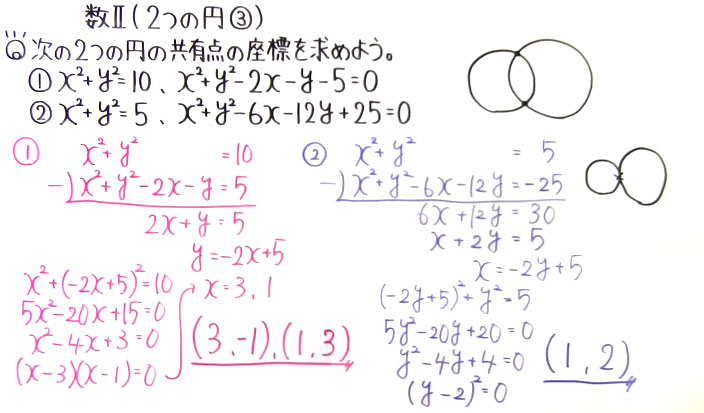 数Ⅱ(2つの円③)
問 次の2つの円の共有点の座標を求めよう。
① x²+y²=10、x²+y²-2x-y-5=0
② x²+y²=5、x²+y²-6x-12y+25=0
① x²+y² =10
-)x²+y²-2x-y=5
2x+y=5
y=-2x+5
x²+(-2x+5)²=10
5x²-20x+15=0
x²-4x+3=0
(x-3)(x-1)=0
x=3,1
(3,-1),(1,3)
② x²+y² = 5
-)x²+y²-6x-12y=-25
6x+12y=30
x+2y=5
x=-2y+5
(-2y+5)²+y²=5
5y²-20y+20=0
y²-4y+4=0
(y-2)²=0
(1,2)